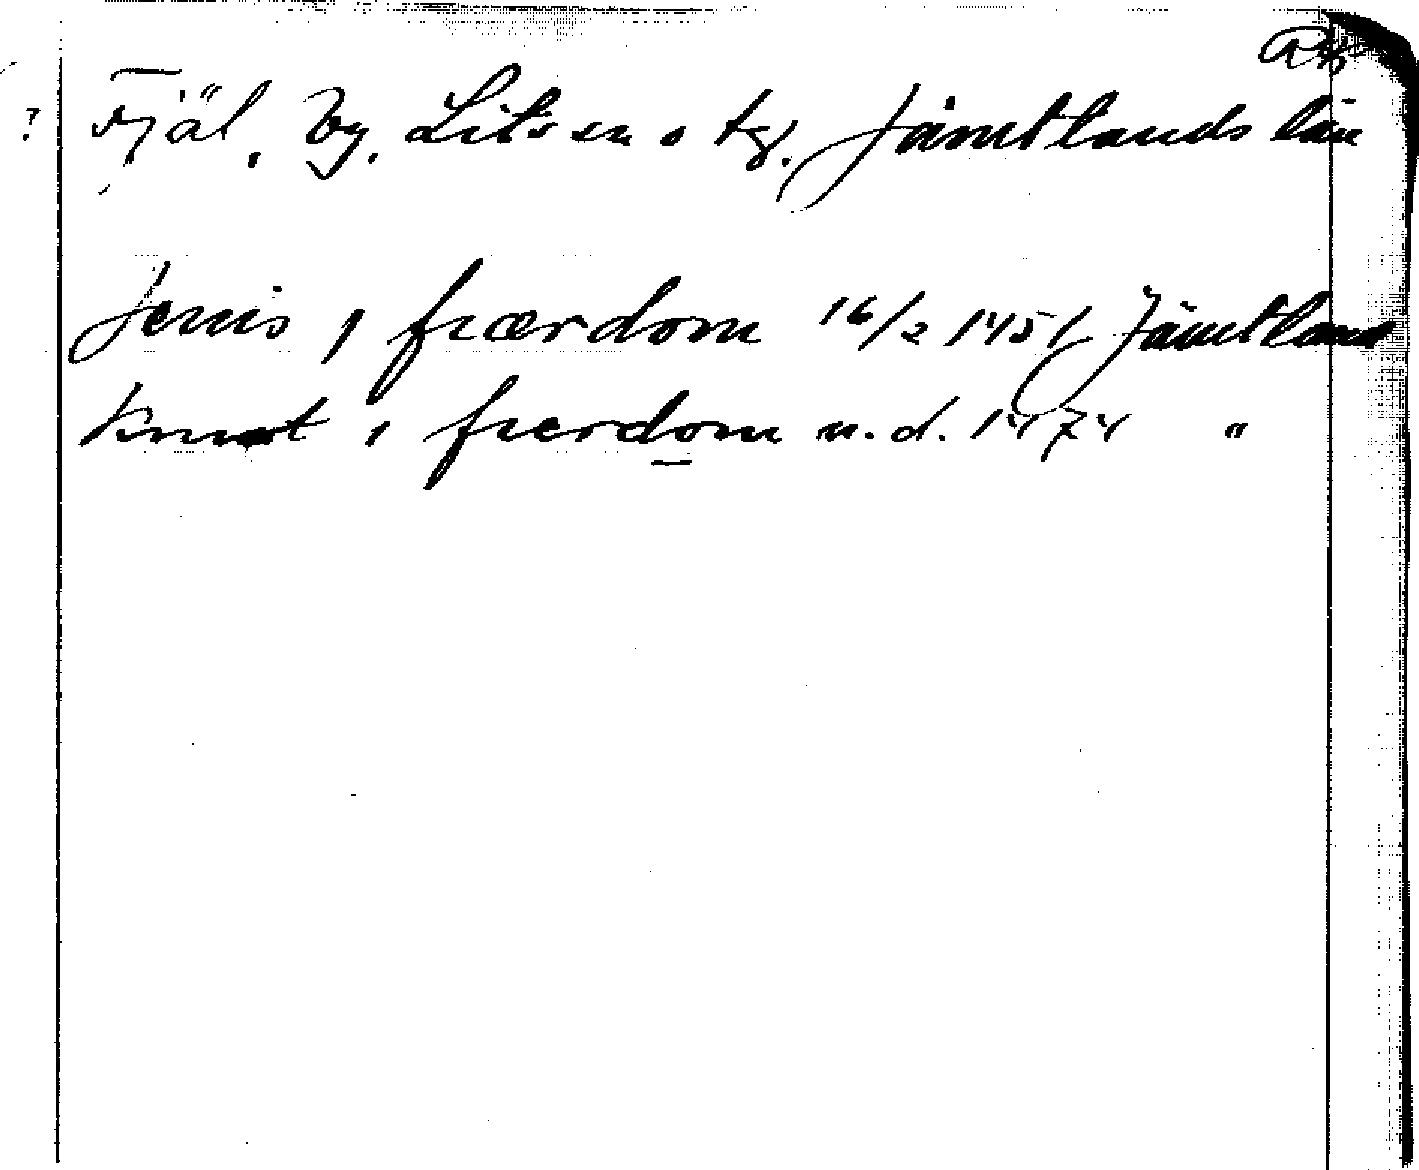 ? Fjäl, by, Lits sn o tg. Jämtlands län
Jenis i fiærdom 16/2 1451 Jämtland
Knut i fierdom u.d. 1474 "